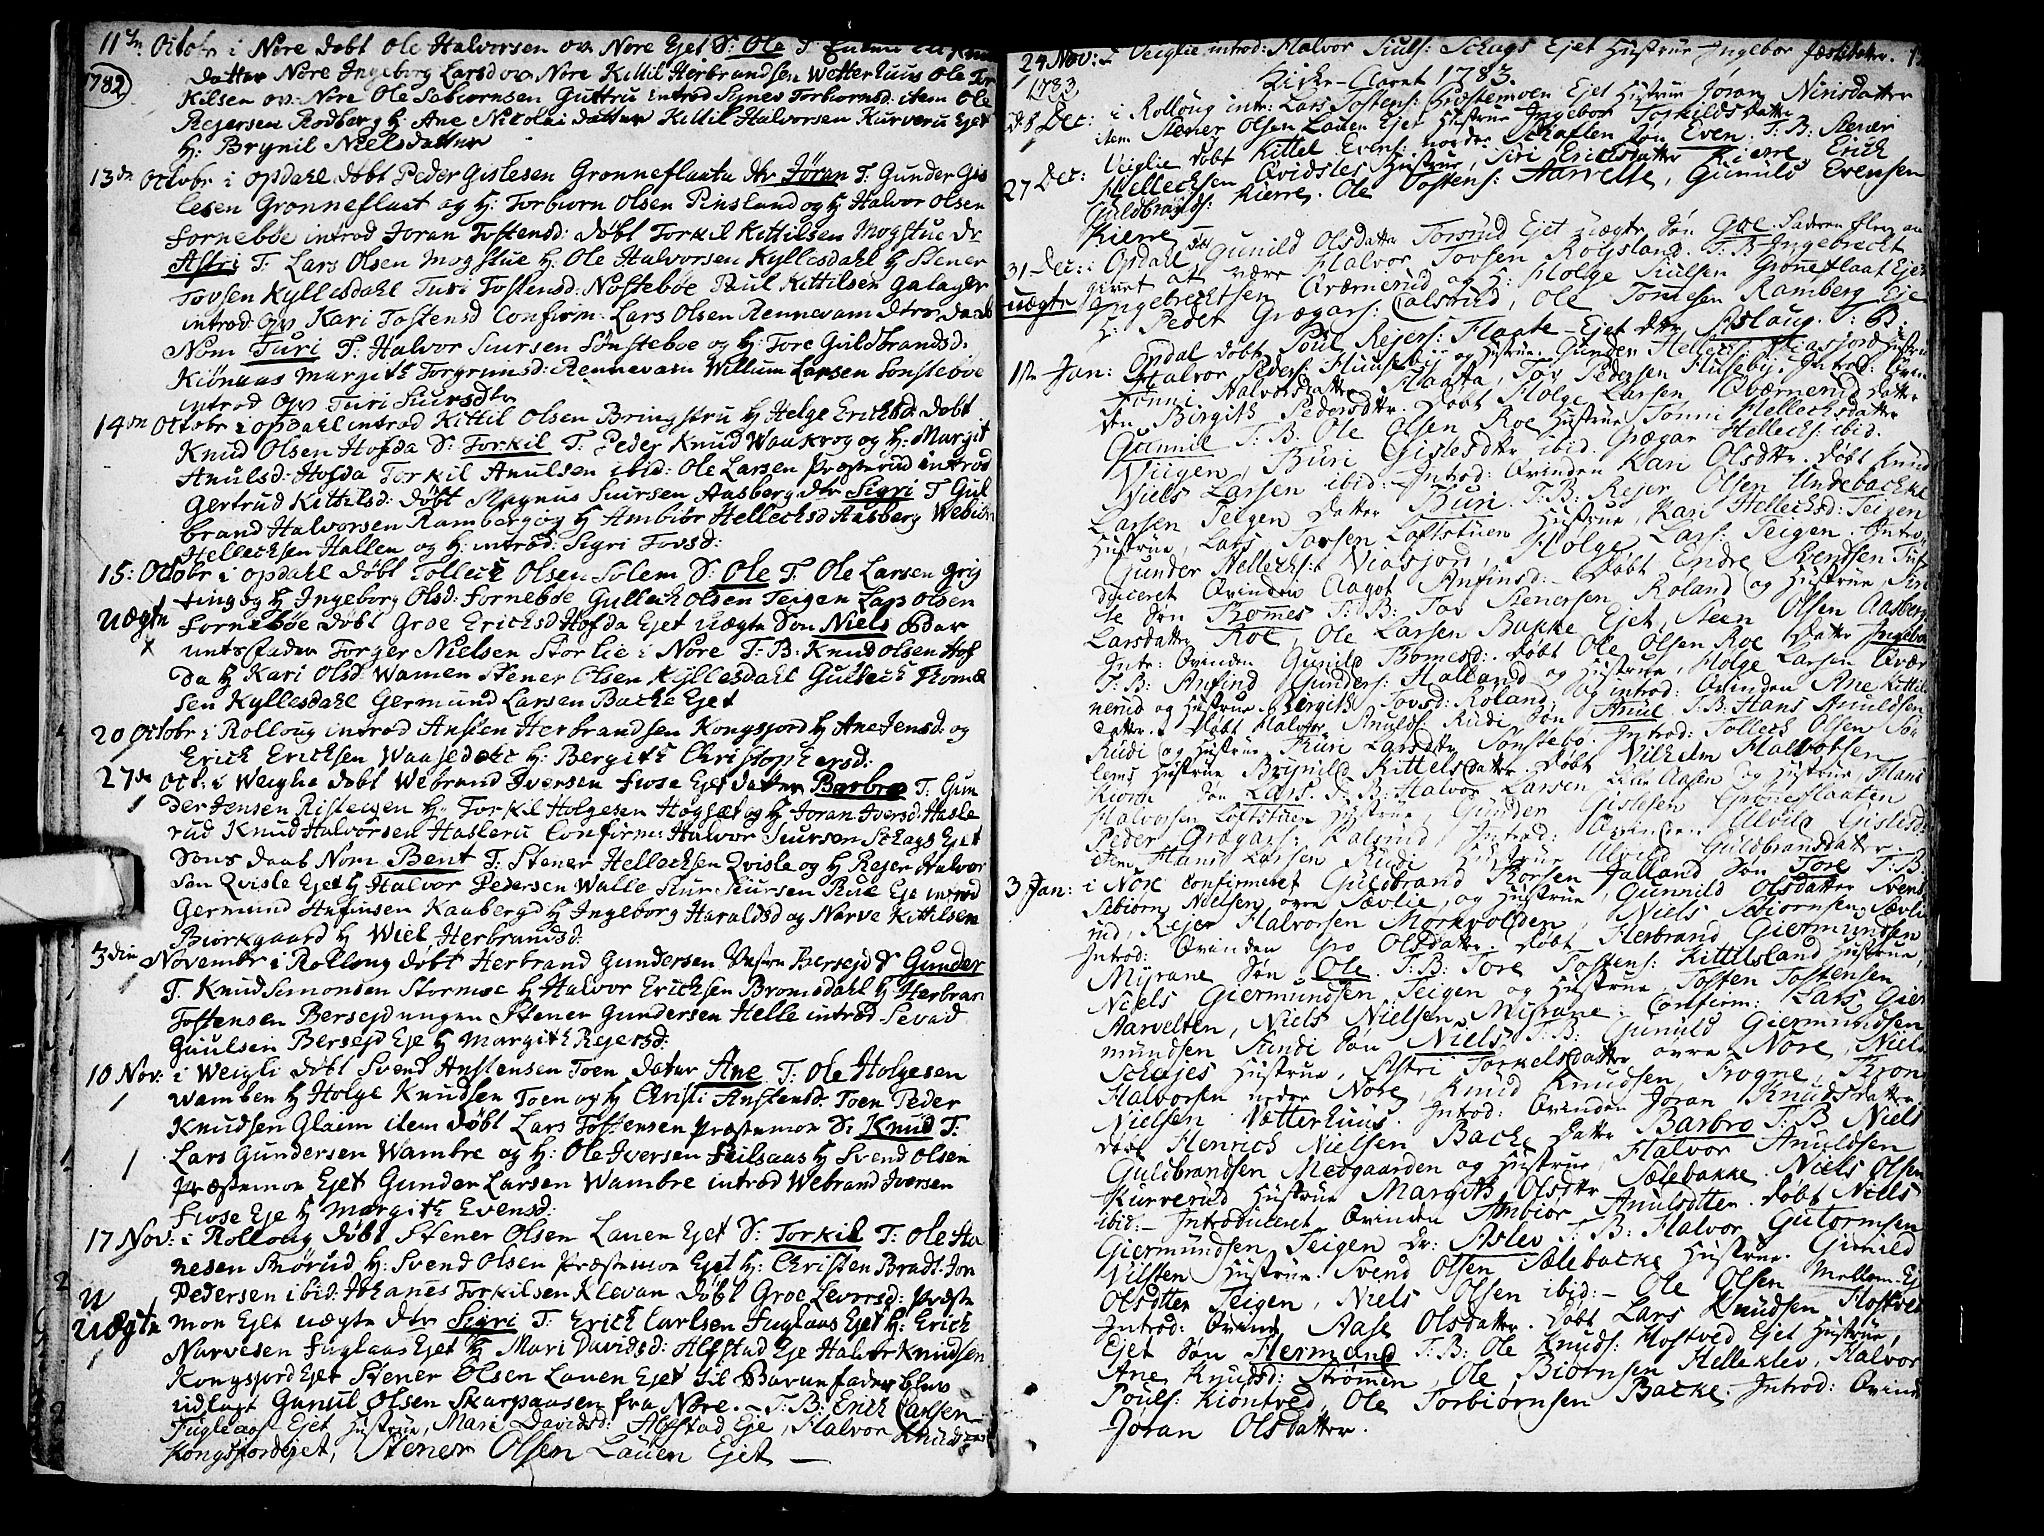 11te Octobr i Nore døbt Ole Halvorsen ov Nore Ejet S: Ole T.
1782
datter Nore Ingeborg Larsd ov Nore Kittil Herbrandsen Wetterhuus Ole Tor
Kilsen ov: Nore Ole Sebiørnsen Guttru introd Synev Torbiørnsd: item Ole
Rejersen Rodberg H Ane Nikolai datter Kittil Halvorsen Kurveru Ejet
H: Brynil Nielsdatter
13de Octobr i Opdahl døbt Peder Gislesen Grønneflaata dtr Jøran T. Gunder Gis
lesen Grønneflaat og H: Torbiørn Olsen Pinsland og H Halvor Olsen
Fornebøe introd Joran Tostensd: døbt Torkil Kittilsen Mogstue dr
Astri T: Lars Olsen Mogstue H: Ole Halvorsen Kyllesdahl H Stener
Tovsen Kyllesdahl Turi Tostensd: Nøstebøe Poul Kittilsen Galager
introd: op Kari Tostensd Confirm: Lars Olsen Rennevam dtrs daab
Nom Turi T: Halvor Siursen Sønsteboe og H: Tore Guldbrandsd:
Kiønaas Margith Torgrimsd: Rennevam Willum Larsen Sonstebøe
introd Op Turi Siursdtr
14de Octobr i Opdahl introd Kittil Olsen Bringstru H Helge Erichsd døbt
Knud Olsen Hofda S: Torkil T: Peder Knud Waakrog og H: Margit
Anulsd: Hofda Torkil Anulsen ibid: Ole Larsen Præsterud introd
Gertrud Kittilsd: døbt Magnus Siursen Aasberg dtr Sigri T Gul
brand Halvorsen Ramberg og H Ambiør Hellechsd Aasberg Webiør
Hellechsen Hallen og H: introd: Sigri Tovsd:
15: Octobr i Opdahl døbt Tollech Olsen Solem S: Ole T: Ole Larsen Grig
sting og H Ingeborg Olsd: Fornebøe Gullich Olsen Teigen Lars Olsen
uægte Fornebøe døbt Groe Erichsd Hofda Ejet uægte Søn Niels
untsfader Torger Nielsen Storlie i Nore T: B: Knud Olsen Hof
da H Kari Olsd: Wamen Stener Olsen Kyllesdahl Gullich Thomæ
sen Kyllesdahl Germund Larsen Backe Ejet
20 Octobr i Rolloug introd Ansten Herbrandsen Kongsjord H Ane Jensd: og
Erich Erichsen Waasedokc H: Bergith Christophersd:
27de Oct: i Weighe døbt Webrand Iversen Fiose Ejet datter Barbro T: Gun
der Jensen Risteigen H: Torkil Holgesen Høgset og H Joran Iversd: Hasle
rud Knud Halvorsen Hasleru Confirm: Halvor Siursen Schags Ejet
Søns daab Nom Bent T: Stener Hellechsen Qvisle og H Rejer Halvor
sen Qvisle Ejet H Halvor Pedersen Walle Siur Siursen Rue Eje introd
Germund Anfinsen Kaaberg H Ingeborg Haraldsd og Narve Kittilsen
Biørkgaard H Wiel Herbrandsd:
3die November i Rolloug døbt Herbrand Gundersen Bersejd S Gunder
T. Knud Semonsen Stormoe H Halvor Erichsen Bromsdahl H Herbran
Tostensen Bersejdungen Stener Gundersen Helle introd Sevad
Guulsen Bersejd Eje H Margith Rejersd:
10 Nov: i Weigli døbt Svend Anstensen Toen datter Ane T: Ole Holgesen
Wamben H Holge Knudsen Toen og H Christi Anstensd: Toen Peder
Knudsen Glaim item døbt Lars Tostensen Præstemoe S: Knud T:
Lars Gundersen Wambre og H: Ole Iversen Feilsaas H Svend Olsen
Præstemoe Ejet Gunder Larsen Wambre introd Webrand Iversen
Fiose Eje H Margith Evensd:
17 Nov: i Rolloug døbt Stener Olsen Lauen Ejet S: Torkil T: Ole Ha
nesen Skørud H: Svend Olsen Præstemoe Ejet H: Christen Bradt: Jon
Pedersen ibid: Johanes Torkilsen Klevan døbt Groe Leversd: Præste
uægte moe Ejet uægte dtr Sigri T: Erich Carlsen Fuglaas Ejet H: Erich
Narvesen Fuglaas Ejet H Mari Davidsd: Alfstad Eje Halvor Knudsen
Kongsjord Ejet Stener Olsen Lauen Ejet til Barnefader blev
udlagt Gunul Olsen Skarpaasen fra Nore. - T: B: Erich Carlsen
Fugleaas Ejet Hustrue, Mari Davidsd: Alfstad Eje, Halvor Knudsen
Kongsfordejet, Stener Olsen Lauen Ejet —
24 Nov: i Veiglie introd: Halvor Siuls: Schags Ejet Hustrue Ingebor Jæsildatter.
1783 Kirke-Aaret 1783.
d: 8 Dec: i Rolloug intr: Lars Tostens: Præstemoen Ejet Hustrue Jøran Nirisdatter
item Stener Olsen Lauen Ejet Hustrue Ingebor Torkildsdatter
27 Dec: Veiglie døbt Kittel Evens: nordre Schaflen Søn Even. T: B: Stener
Hellechsen Qvidsles Hustrue, Siri Erichsdatter Kierre, Erich
Guldbrands: Kierre. Ole Tostens: Aarvelte, Gunuld Evensen
Kierre
31 Dec: i Opdal døbt Gunild Olsdatter Torsrud Ejet uægte Søn Goe. Faderen blev an
uægte givet at være Halvor Tovsen Roysland. T: B: Ingebrecht
Ingebrechtsen Qværnerud og H: Holge Siulsen Grønneflaat Ejet
H: Peder Grægars: Calsrud, Ole Tomesen Ramberg Eje
1ste Jan: Opdal døbt Poul Rejers: Flaate Ejet dtr Aslaug. T: B:
Halvor Peders: Huuseby og Hustrue, Gunder Hellechs: Viasjord Hustrue
Tonni Halvorsdatter Flaatta, Tov Pedersen Huseby. Introd: Qvin
den Birgith Pedersdtr. Døbt Holge Larsen Qværnerud datter
Gunnil T. B. Ole Olsen Roe Hustrue Tonni Hellechsdatter
Viigen, Buri Gislesdtr ibid. Grægar Hellechs: ibid.
Niels Larsen ibid: Introd: Qvinden Kari Olsdtr. Døbt Knud
Larsen Teigen Datter Buri. T. B: Rejer Olsen Undebacke
Hustrue, Lars Tovsen Loftstuen Hustrue, Kari Hellechsd: Teigen
Gunder Hellechs: Viasjord, Holge Lars: Teigen. Intro
duceret Qvinden Aagot Anfinsd: - Døbt Endre Svendsen Tuf
te Søn Bommes T: B: Tov Stenersen Roland og Hustrue Siri
Larsdatter Roe, Ole Larsen Bakke Ejet, Steen Olsen Aasberg
Intr: Qvinden Gunild Bomesd: Døbt Ole Olsen Roe Datter Ingebor
T: B: Anfind Gunders: Halland og Hustrue, Holge Larsen Qvær
nerud og Hustrue Bergith Tovsd: Roland og introd: Qvinden Ane Kittils
datter. Døbt Halvor Anulds: Rudi Søn Anul. T: B: Hans Anuldsen
Rudi og Hustrue Turi Larsdtr Sønstebø: Introd: Tollech Olsen Sør
lems Hustrue Brynild Kittelsdatter. Døbt Vilhelm Halvorsen
Kiønn Søn Lars. T: B: Halvor Larsen Liaaasen og Hustrue, Hans
Halvorsen Loftstuen Hustrue, Gunder Gislesen Grøneflaaten
Peder Grægars: Kalsrud, Introd: Qvinden Ulvild Gislesd:
item Hans Larsen Rudi Hustrue Ulvild Guldbrandsdatter.
3. Jan: i Nore Confirmeret Guldbrand Thorsen Jalland Søn Tore T: B:
Sebiørn Nielsen, øvre Sævlie, og Hustrue, Gunnild Olsdatter Svens
rud, Rejer Halvorsen Mørkvolden, Niels Sebiørnsen, Sævlie
Introd: Qvinden Gro Olsdatter. Døbt Herbrand Giermundsen
Myrane Søn Ole. T: B: Tore Tostens: Kittilsland Hustrue,
Niels Giermundsen Teigen og Hustrue, Tosten Tostensen
Aarvelten, Niels Nielsen Myrane: Confirm: Lars Gier
mundsen Sundi Søn Niels T: B: Gunuld Giermundsen
Schajes Hustrue, Astri Torkelsdatter øvre Nore, Niels
Halvorsen nedre Nore, Knud Knudsen, Frogne, Tron
Nielsen Vætterhuus. Introd: Qvinden Joran Knudsdatter.
Døbt Henrich Nielsen Backe Datter Barbro T: B: Niels
Guldbrandsen Medgaarden og Hustrue, Halvor Anuldsen
Kurverud Hustrue Margith Olsdtr Sælebakke. Niels Olsen
ibid: - Introduceret Qvinden Ambiør Anulsdtter. Døbt Niels
Giermundsen Teigen Dr: Aslev T: B: Halvor Gutormsen
Nilsten Hustrue. Svend Olsen Sælebacke Hustrue. Gunild
Olsdtter Teigen, Niels Olsen ibid: - Ole Olsen Mellem-Ej
Introd: Qvind Aase Olsdatter. Døbt Lars Knudsen Hostved
Ejet Søn Hermand T: B: Ole Knuds: Hostved Ejet Hustrue,
Ane Knudsd: Strømen, Ole Biørnsen Helleklev, Halvor
Pouls: Kiontved, Ole Torbiørnsen Backe: Introd: Qvinde
Jøran Olsdatter.